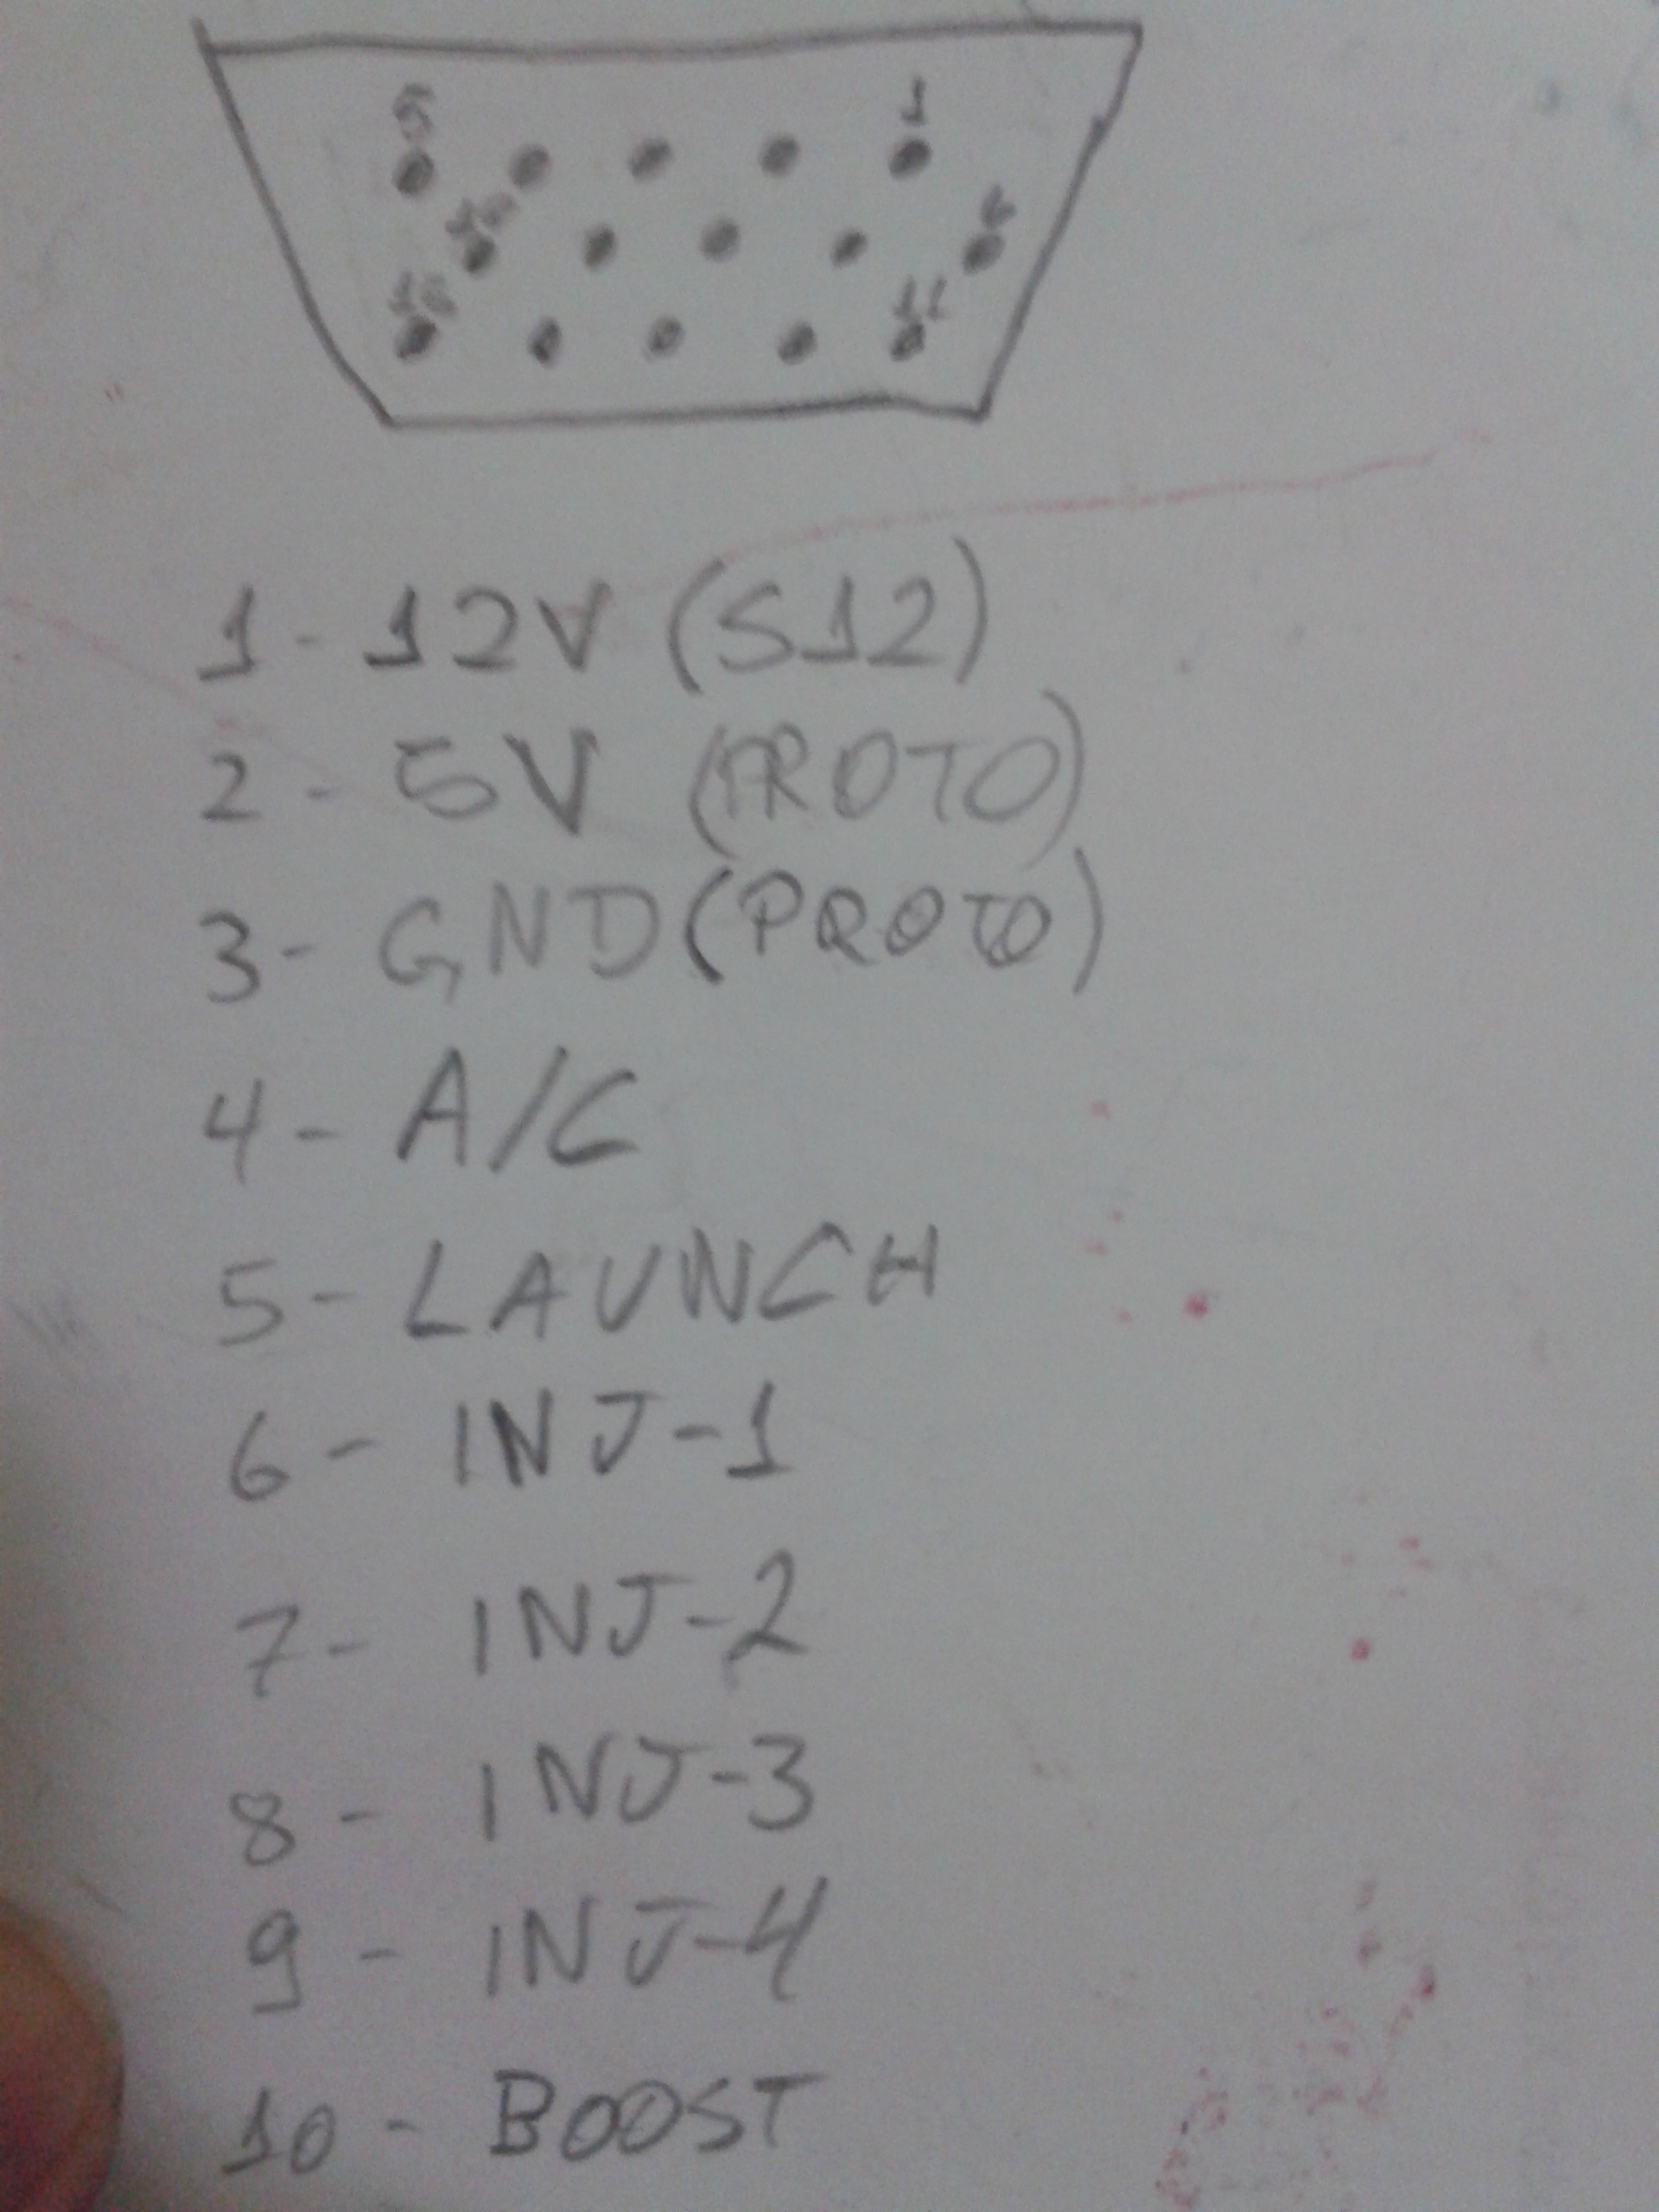 5 1
10 6
15 11
1 - 12V (S12)
2 - 5V (PROTO)
3 - GND (PROTO)
4 - A/C
5 - LAUNCH
6 - INJ-1
7 - INJ-2
8 - INJ-3
9 - INJ-4
10 - BOOST